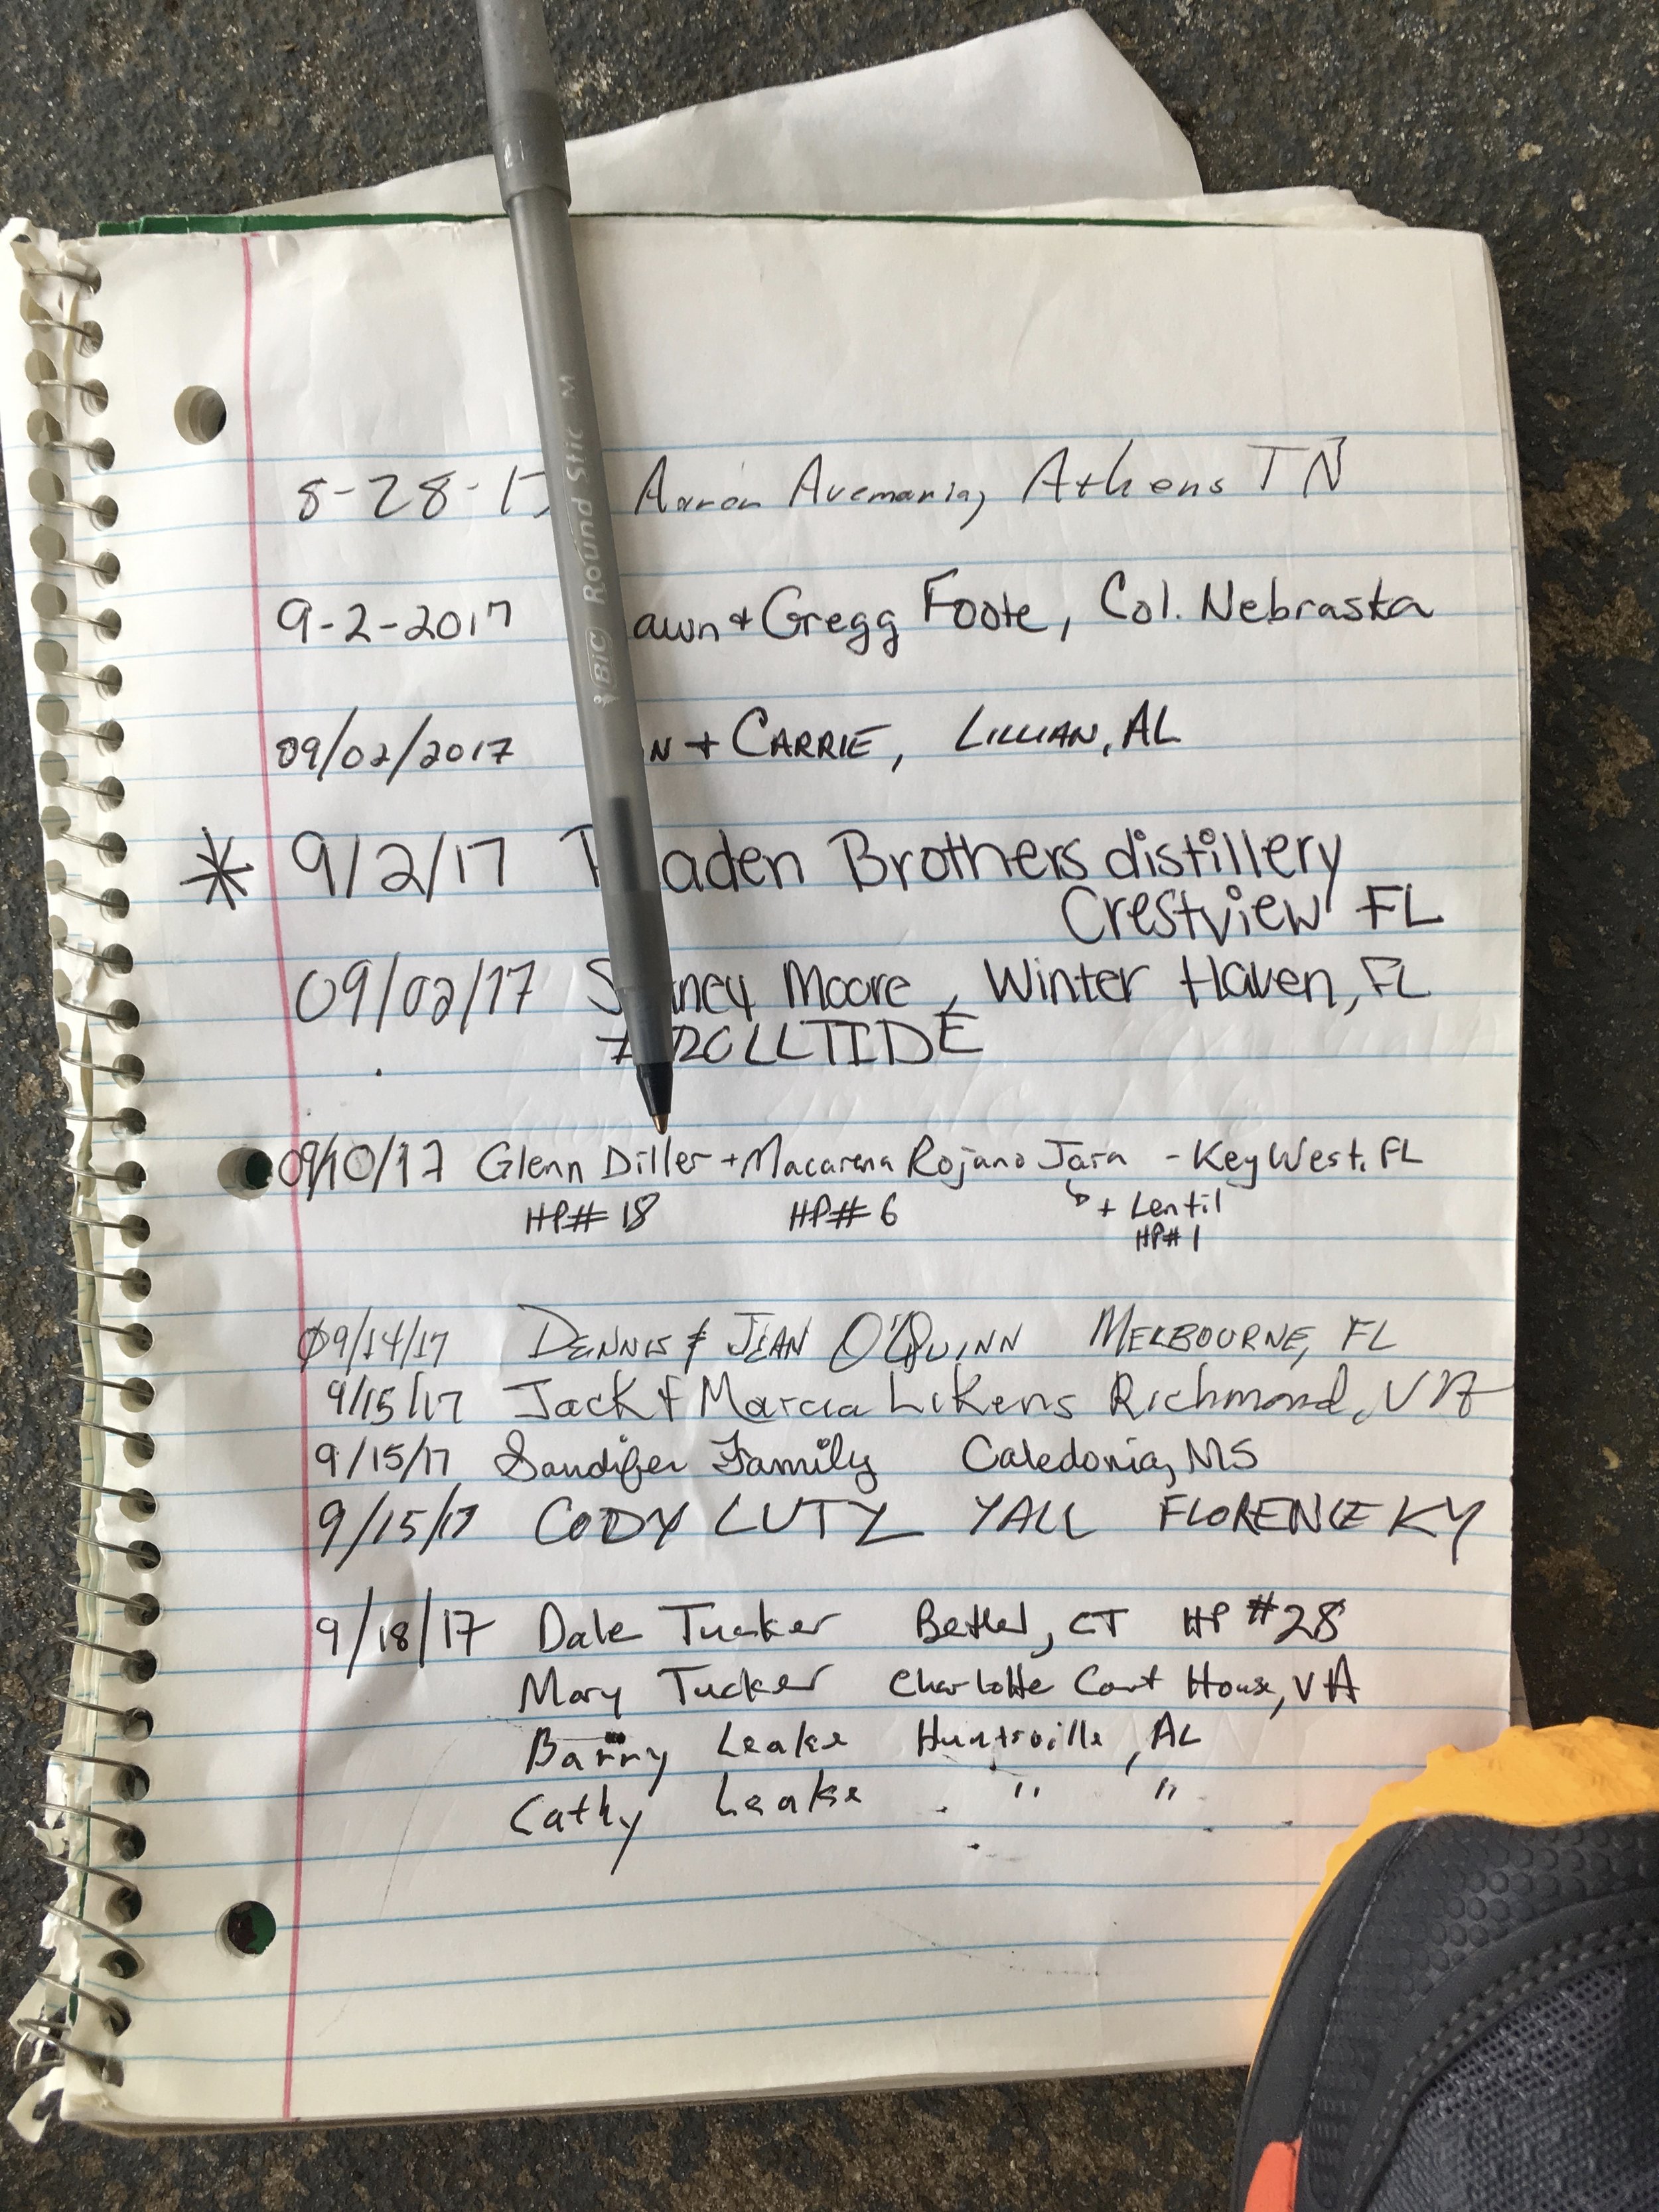 8-28-17 Aaron Avemaria, Athens TN
9-2-2017 awn + Gregg Foote, Col. Nebraska
09/02/2017 N + CARRIE, LILLIAN, AL
* 9/2/17 aden Brothers distillery
Crestview FL
09/02/17 S ney Moore, Winter Haven, FL
#ROLLTIDE
09/10/17 Glenn Diller + Macarena Rojano Jara - Key West, FL
HP# 18 HP# 6 + Lentil
HP# 1
09/14/17 DENNIS & JEAN O'QUINN MELBOURNE, FL
9/15/17 Jack & Marcia Likens Richmond, VA
9/15/17 Sandifer Family Caledonia, MS
9/15/17 CODY LUTZ YALL FLORENCE KY
9/18/17 Dale Tucker Bethel, CT HP #28
Mary Tucker Charlotte Court House, VA
Barry Leake Huntsville, AL
Cathy Leake " "
BIC Round Stic M